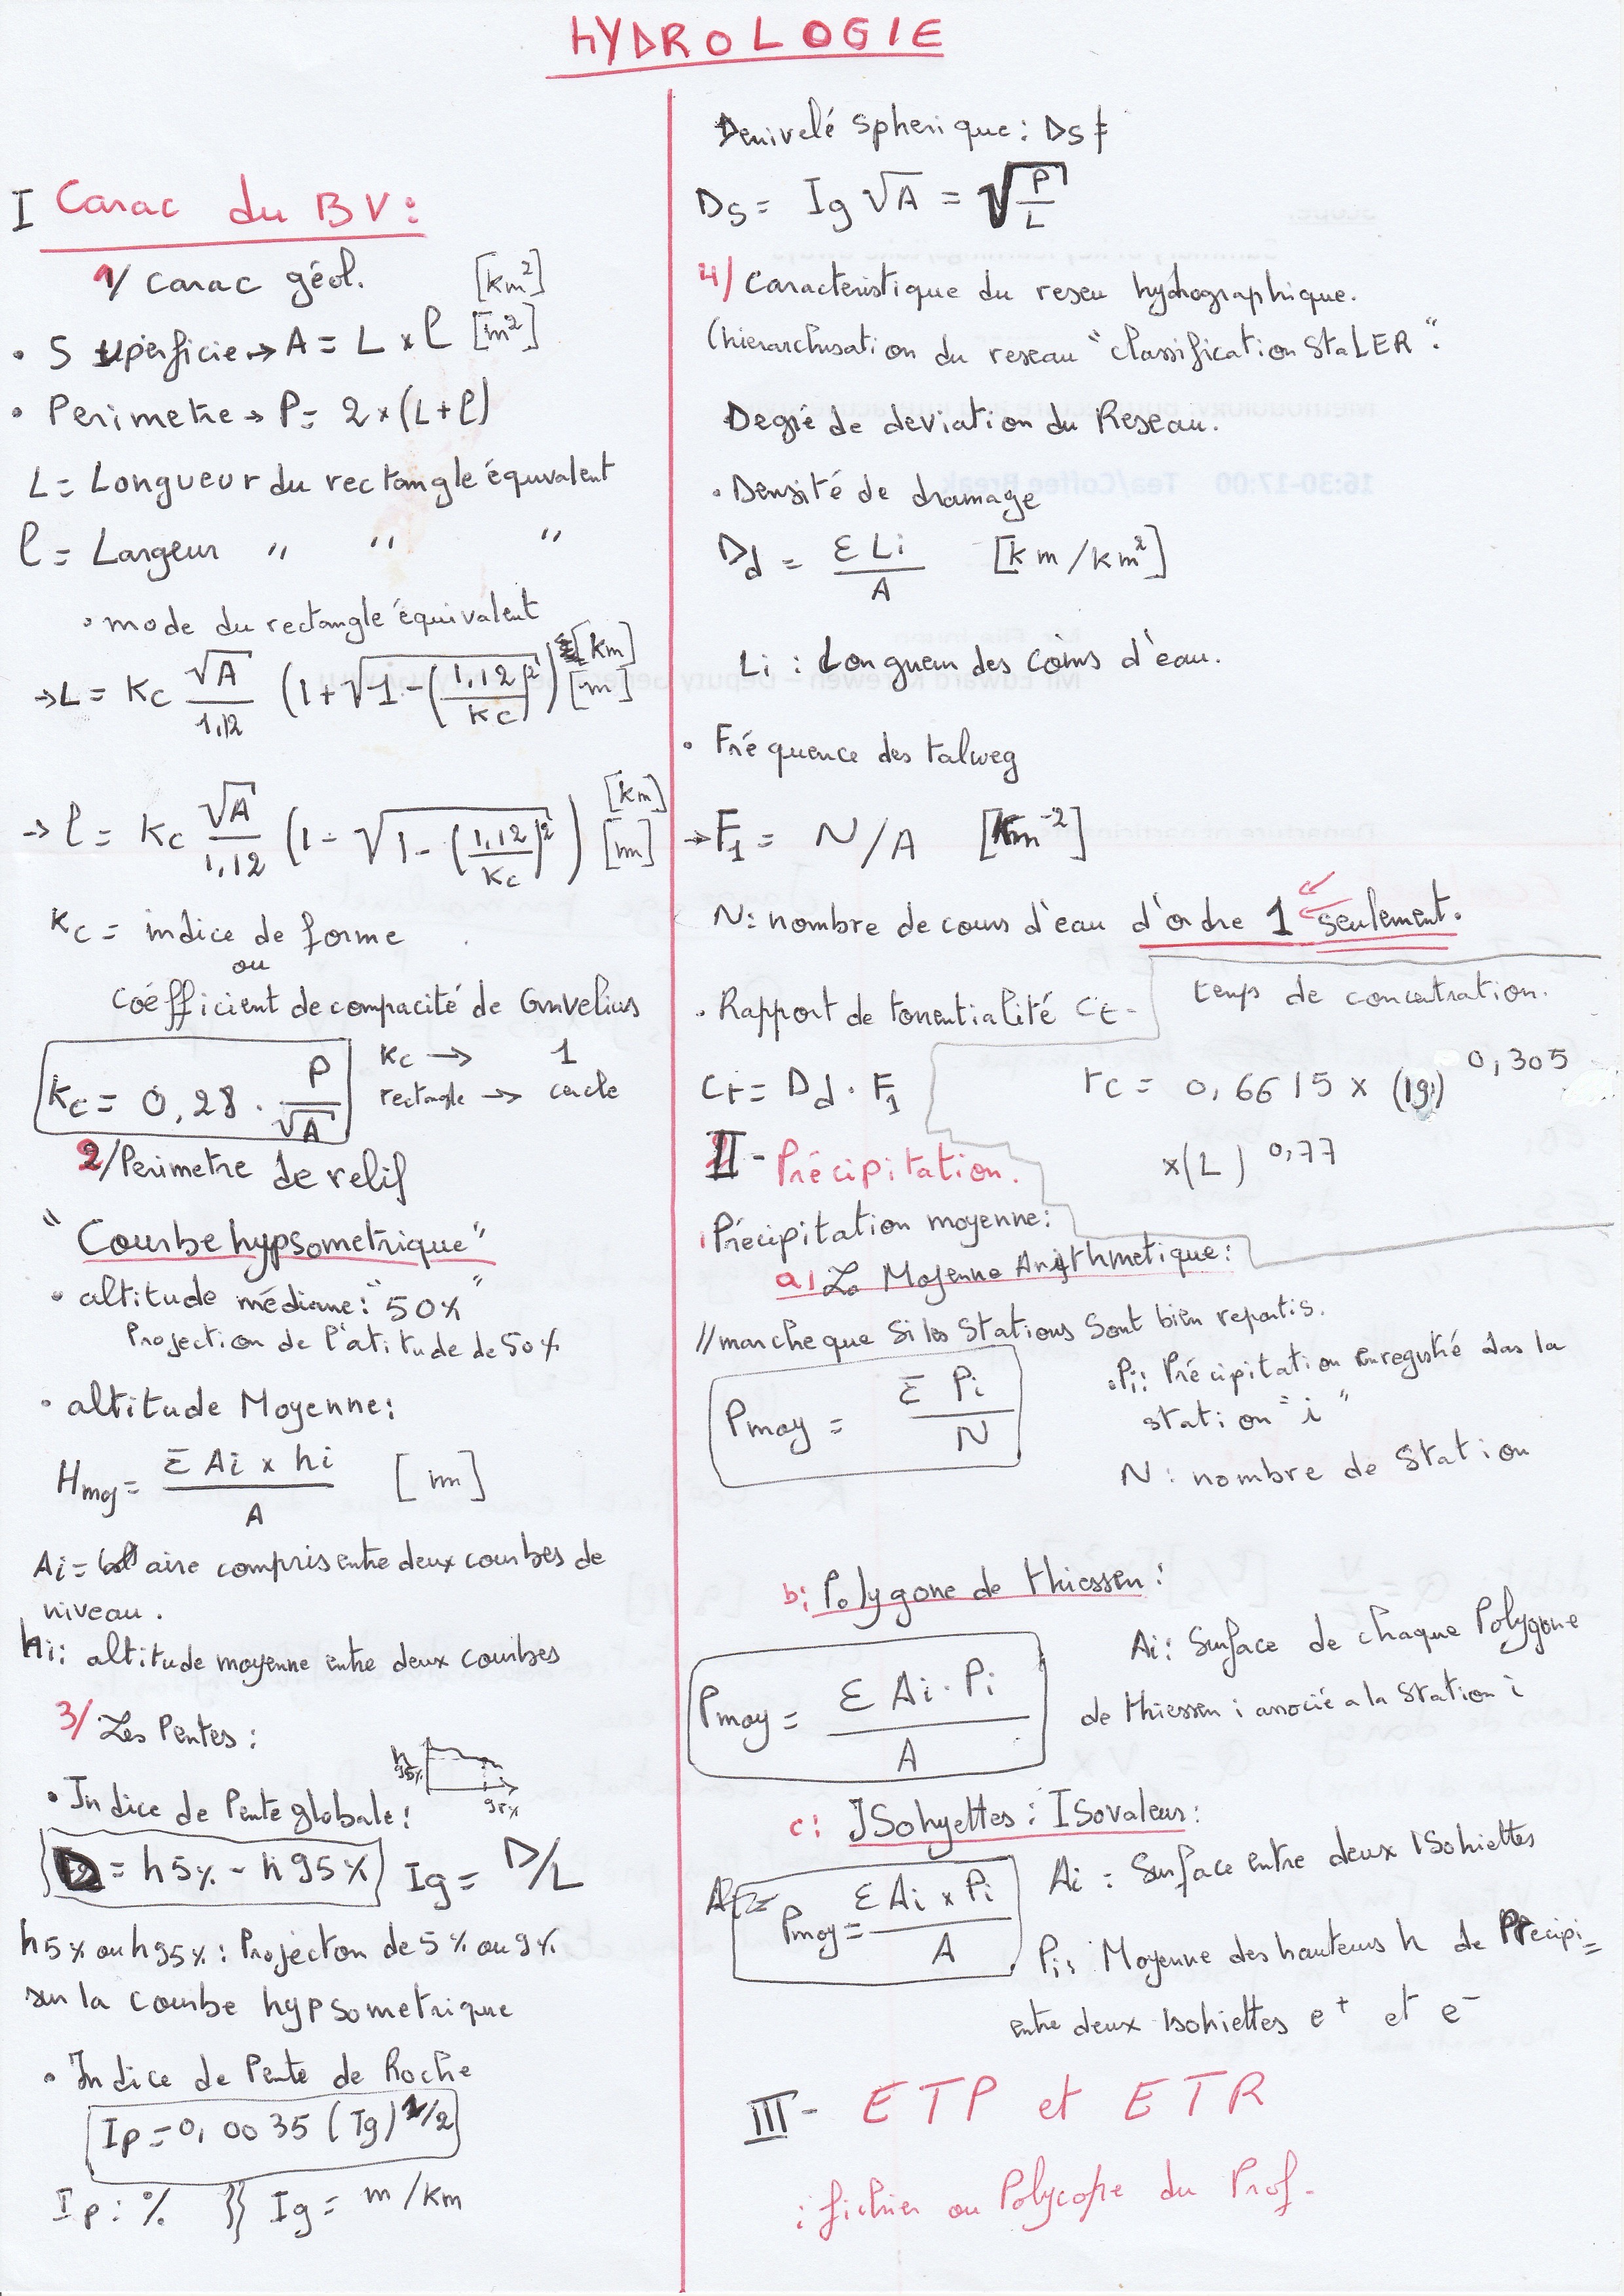 HYDROLOGIE
I Carac du BV:
1/ carac géol. [km²]
• Superficie → A = L x l [m²]
• Perimetre → P = 2 x (L+l)
L = Longueur du rectangle équivalent
l = Largeur " " "
• mode du rectangle équivalent
→ L = Kc √A/1,12 (1 + √(1 - (1,12/Kc)²)) [km] [m]
→ l = Kc √A/1,12 (1 - √(1 - (1,12/Kc)²)) [km] [m]
Kc = indice de forme
ou
coéfficient de compacité de Gravelius
Kc = 0,28 . P/√A Kc → 1
rectangle → cercle
2/ Perimetre de relif
"Courbe hypsometrique"
• altitude médiane: "50%"
Projection de l'atitude de 50%
• altitude Moyenne:
Hmoy = Σ Ai x hi / A [m]
Ai = aire compris entre deux courbes de
niveau.
hi: altitude moyenne entre deux courbes
3/ Les Pentes:
h 95% 95%
• Indice de Pente globale:
D = h5% - h95% Ig = D/L
h5% ou h95%: Projecton de 5% ou 9%
sur la courbe hypsometrique
• Indice de Pente de Roche
Ip = 0,0035 (Ig)^1/2
Ip: % }} Ig = m/km
Denivelé spherique: Ds
Ds = Ig √A = √(P/L)
4/ Caracteristique du reseu hydrographique.
(hierarchisation du reseau "classification StaLER".
Degré de deviation du Reseau.
• Densité de dramage
Dd = Σ Li / A [km/km²]
Li : Longueur des coùrs d'eau.
• Fréquence des talweg
→ F1 = N/A [Km⁻²]
N: nombre de cours d'eau d'ordre 1 seulement.
• Rapport de torrentialité Ct -
Ct = Dd . F1
temps de concentration.
tc = 0,6615 x (Ig)^0,305
x(L)^0,77
II - Précipitation.
Précipitation moyenne:
a) La Moyenne Arithmetique:
//marche que Si les Stations Sont bien repartis.
Pmoy = Σ Pi / N
•Pi: Précipitation enregistré dans la
station "i"
N: nombre de Station
b: Polygone de thiessen:
Pmoy = Σ Ai . Pi / A
Ai: Surface de chaque Polygone
de thiessen i associé a la Station i
c: ISohyettes: ISovaleurs:
Pmoy = Σ Ai x Pi / A
Ai : Surface entre deux ISohiettes
Pi: Moyenne des hauteurs h de Precipi=
entre deux Isohiettes e⁺ et e⁻
III- ETP et ETR
: fichier ou Polycope du Prof.